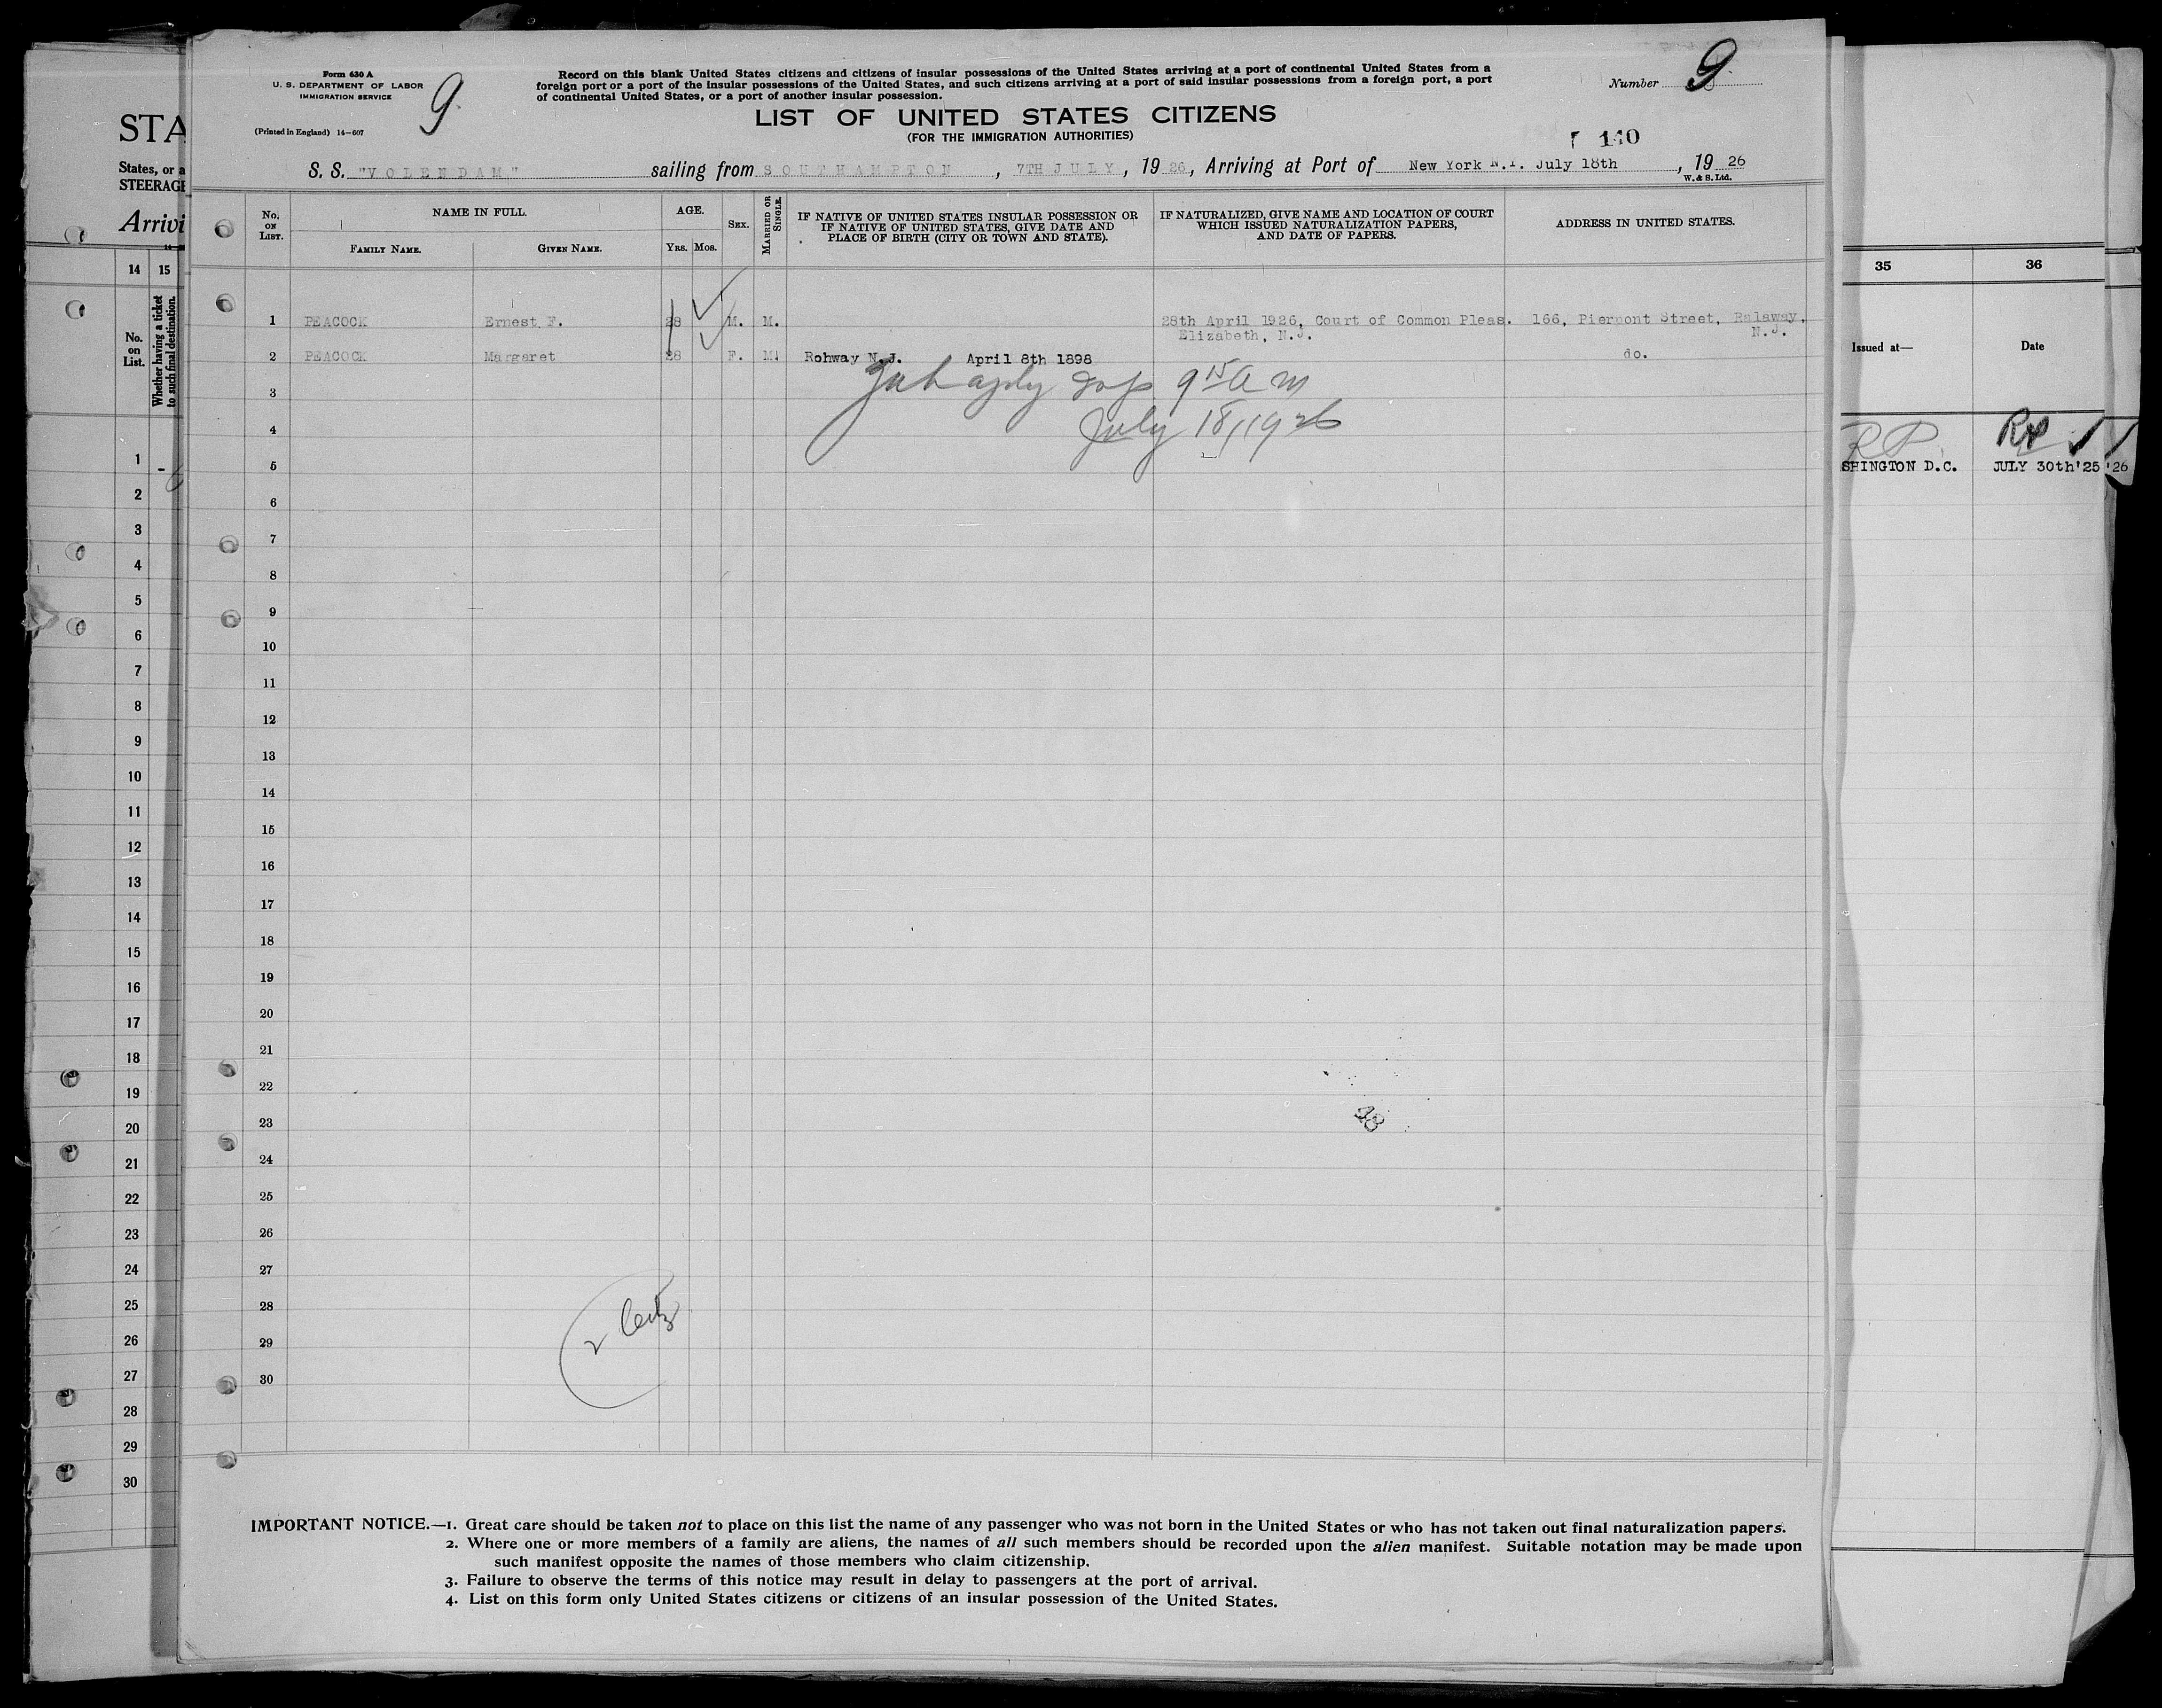 Form 630 A
U. S. DEPARTMENT OF LABOR
IMMIGRATION SERVICE
(Printed in England) 14-607
9
Record on this blank United States citizens and citizens of insular possessions of the United States arriving at a port of continental United States from a
foreign port or a port of the insular possessions of the United States, and such citizens arriving at a port of said insular possessions from a foreign port, a port
of continental United States, or a port of another insular possession.
Number 9
LIST OF UNITED STATES CITIZENS
(FOR THE IMMIGRATION AUTHORITIES)
140
S. S. "VOLENDAM" sailing from SOUTHAMPTON, 7TH JULY, 1926, Arriving at Port of New York N.Y. July 18th, 1926
W. & S. Ltd.
No. on List.
NAME IN FULL.
Family Name.
Given Name.
AGE.
Yrs. Mos.
Sex.
Married or Single.
IF NATIVE OF UNITED STATES INSULAR POSSESSION OR
IF NATIVE OF UNITED STATES, GIVE DATE AND
PLACE OF BIRTH (CITY OR TOWN AND STATE).
IF NATURALIZED, GIVE NAME AND LOCATION OF COURT
WHICH ISSUED NATURALIZATION PAPERS,
AND DATE OF PAPERS.
ADDRESS IN UNITED STATES.
1 PEACOCK Ernest F. 28 M. M. 28th April 1926, Court of Common Pleas. 166, Piermont Street, Ralaway,
Elizabeth, N.J. N.J.
2 PEACOCK Margaret 28 F. M. Rohway N.J. April 8th 1898 do.
3
9 15 A m
4
July 18, 1926
5
6
7
8
9
10
11
12
13
14
15
16
17
18
19
20
21
22
23
48
24
25
26
27
28
2
29
30
IMPORTANT NOTICE.—1. Great care should be taken not to place on this list the name of any passenger who was not born in the United States or who has not taken out final naturalization papers.
2. Where one or more members of a family are aliens, the names of all such members should be recorded upon the alien manifest. Suitable notation may be made upon
such manifest opposite the names of those members who claim citizenship.
3. Failure to observe the terms of this notice may result in delay to passengers at the port of arrival.
4. List on this form only United States citizens or citizens of an insular possession of the United States.
STA
States, or a
STEERAGE
Arrivi
14 15
No. on List.
Whether having a ticket
to such final destination.
1 -
2
3
4
5
6
7
8
9
10
11
12
13
14
15
16
17
18
19
20
21
22
23
24
25
26
27
28
29
30
35 36
Issued at— Date
RP
SHINGTON D.C. JULY 30th'25 '26